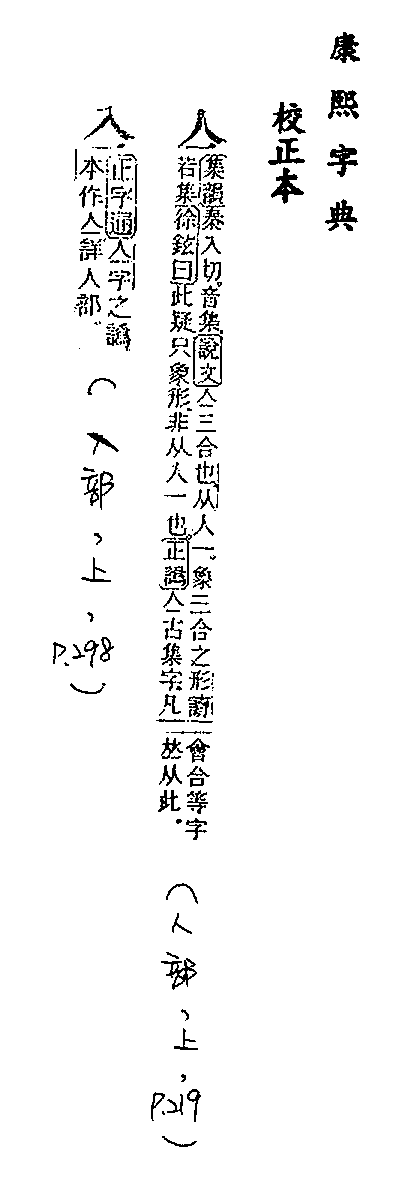 康熙字典
校正本
亼
集韻秦入切。音集說文亼三合也。从人一。象三合之形讀
若集徐鉉曰此疑只象形非从人一也。正譌亼古集字凡
會合等字
𠀤从此。
(人部,上,P.219)
正字通亼字之譌
本作亼詳人部。
(入部,上,P.298)